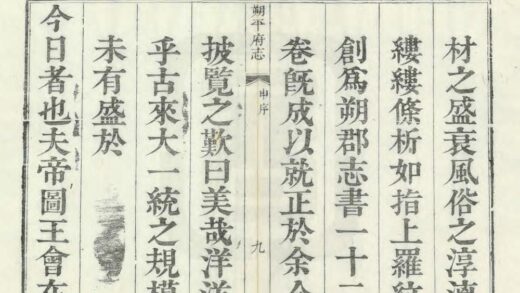 材之盛衰風俗之淳漓
縷縷條析如指上羅紋
創爲朔郡志書一十二
卷旣成以就正於余
朔平府志
申序
九
披覽之歎曰美哉洋洋
乎古來大一統之規模
未有盛於
今日者也夫帝圖王會在